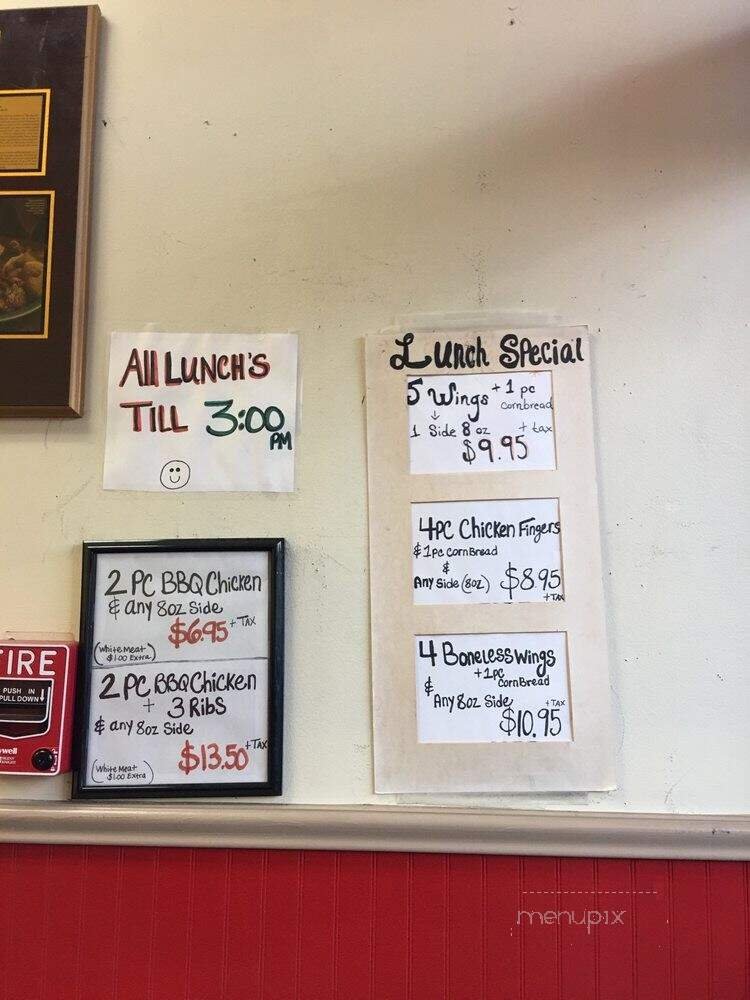 All LUNCH'S
TILL 3:00
PM
Lunch Special
5 Wings + 1 pc
cornbread
1 Side 8 oz + tax
$9.95
4PC Chicken Fingers
& 1pc CornBread
&
Any Side (8oz) $8.95
+ TAX
4 Boneless Wings
+ 1pc
CornBread
&
Any 8oz Side + TAX
$10.95
2 PC BBQ Chicken
& any 8oz Side
$6.95 + TAX
(White Meat
$1.00 Extra)
2 PC BBQ Chicken
+ 3 Ribs
& any 8oz Side
$13.50 + TAX
(White Meat
$1.00 Extra)
FIRE
PUSH IN
PULL DOWN
menupix